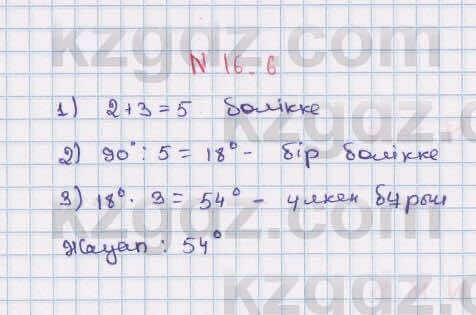 kzgdz.com
N 16.6
1) 2+3=5 бөлікке
2) 90°:5=18° - бір бөлікке
3) 18°·3=54° - үлкен бұрыш
Жауап: 54°